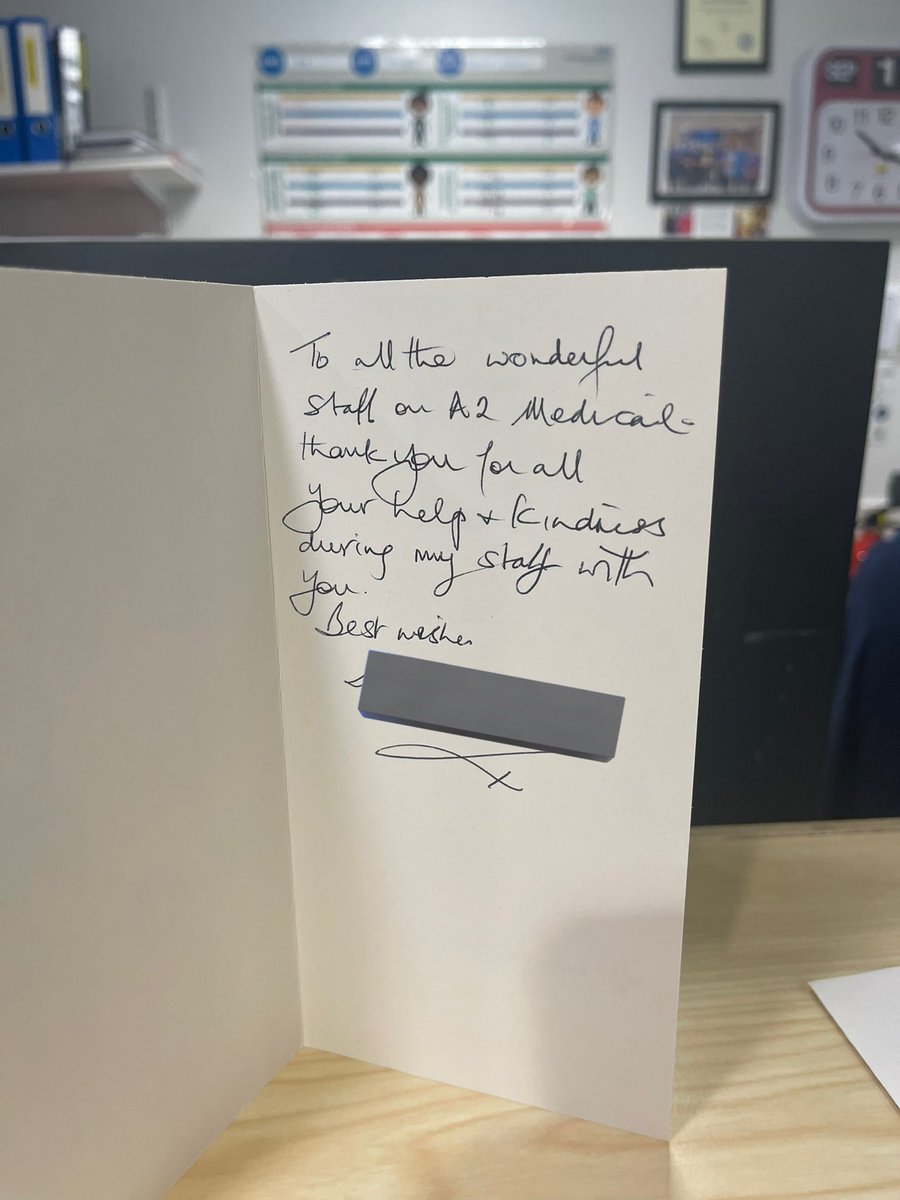 To all the wonderful
staff on A2 Medical -
thank you for all
your help & kindness
during my staff with
you.
Best wishes
SEP 1